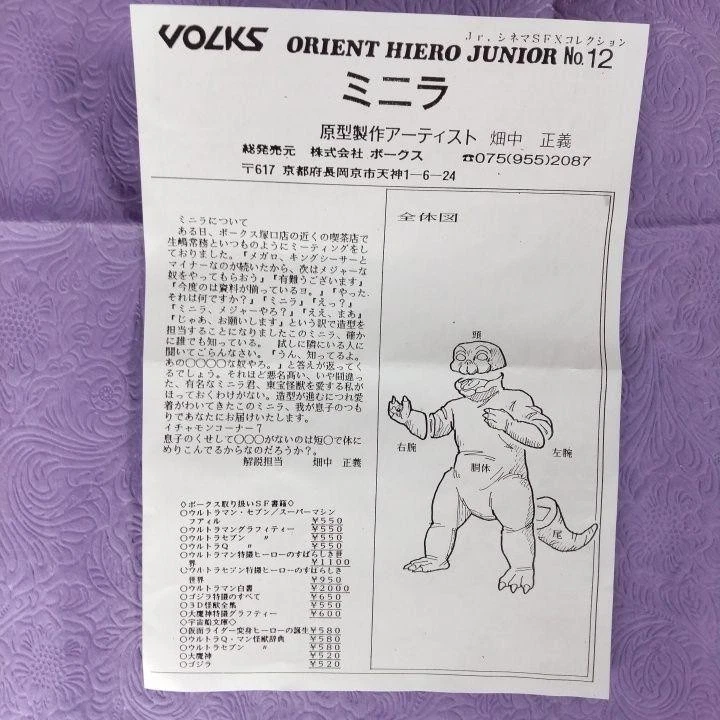 VOLKS
Jr.シネマSFXコレクション
ORIENT HIERO JUNIOR No.12
ミニラ
原型製作アーティスト 畑中 正義
総発売元 株式会社 ボークス ☎075(955)2087
〒617 京都府長岡京市天神1-6-24
ミニラについて
ある日、ボークス塚口店の近くの喫茶店で
生嶋常務といつものようにミーティングをし
ておりました。『メガロ、キングシーサーと
マイナーなのが続いたから、次はメジャーな
奴をやってもらおう』『有難うございます』
『今度のは資料が揃っているヨ。』『やった、
それは何ですか?』『ミニラ』『えっ?』
『ミニラ、メジャーやろ?』『ええ、まあ』
『じゃあ、お願いします』という訳で造型を
担当することになりましたこのミニラ、確か
に誰でも知っている。 試しに隣にいる人に
聞いてごらんなさい。『うん、知ってるよ。
あの○○○○な奴やろ。』と答えが返ってく
るでしょう。それほど悪名高い、いや間違っ
た、有名なミニラ君、東宝怪獣を愛する私が
ほっておくわけがない。造型が進むにつれ愛
着がわいてきたこのミニラ、我が息子のつも
りであなたにお届けいたします。
イチャモンコーナー7
息子のくせして○○○がないのは短○で体に
めりこんでるからなのだろうか?。
解説担当 畑中 正義
◇ボークス取り扱いSF書籍◇
○ウルトラマン・セブン/スーパーマシン
ファィル ¥550
○ウルトラマングラフィティー ¥550
○ウルトラセブン 〃 ¥550
○ウルトラQ 〃 ¥550
○ウルトラマン特撮ヒーローのすばらしき世
界 ¥1100
○ウルトラセブン特撮ヒーローのすばらしき
世界 ¥950
○ウルトラマン白書 ¥2000
○ゴジラ特撮のすべて ¥650
○3D怪獣全集 ¥550
○大魔神特撮グラフティー ¥600
◇宇宙船文庫◇
○仮面ライダー変身ヒーローの誕生¥580
○ウルトラQ・マン怪獣辞典 ¥580
○ウルトラセブン 〃 ¥580
○大魔神 ¥520
○ゴジラ ¥520
全体図
頭
右腕
左腕
胴体
尾